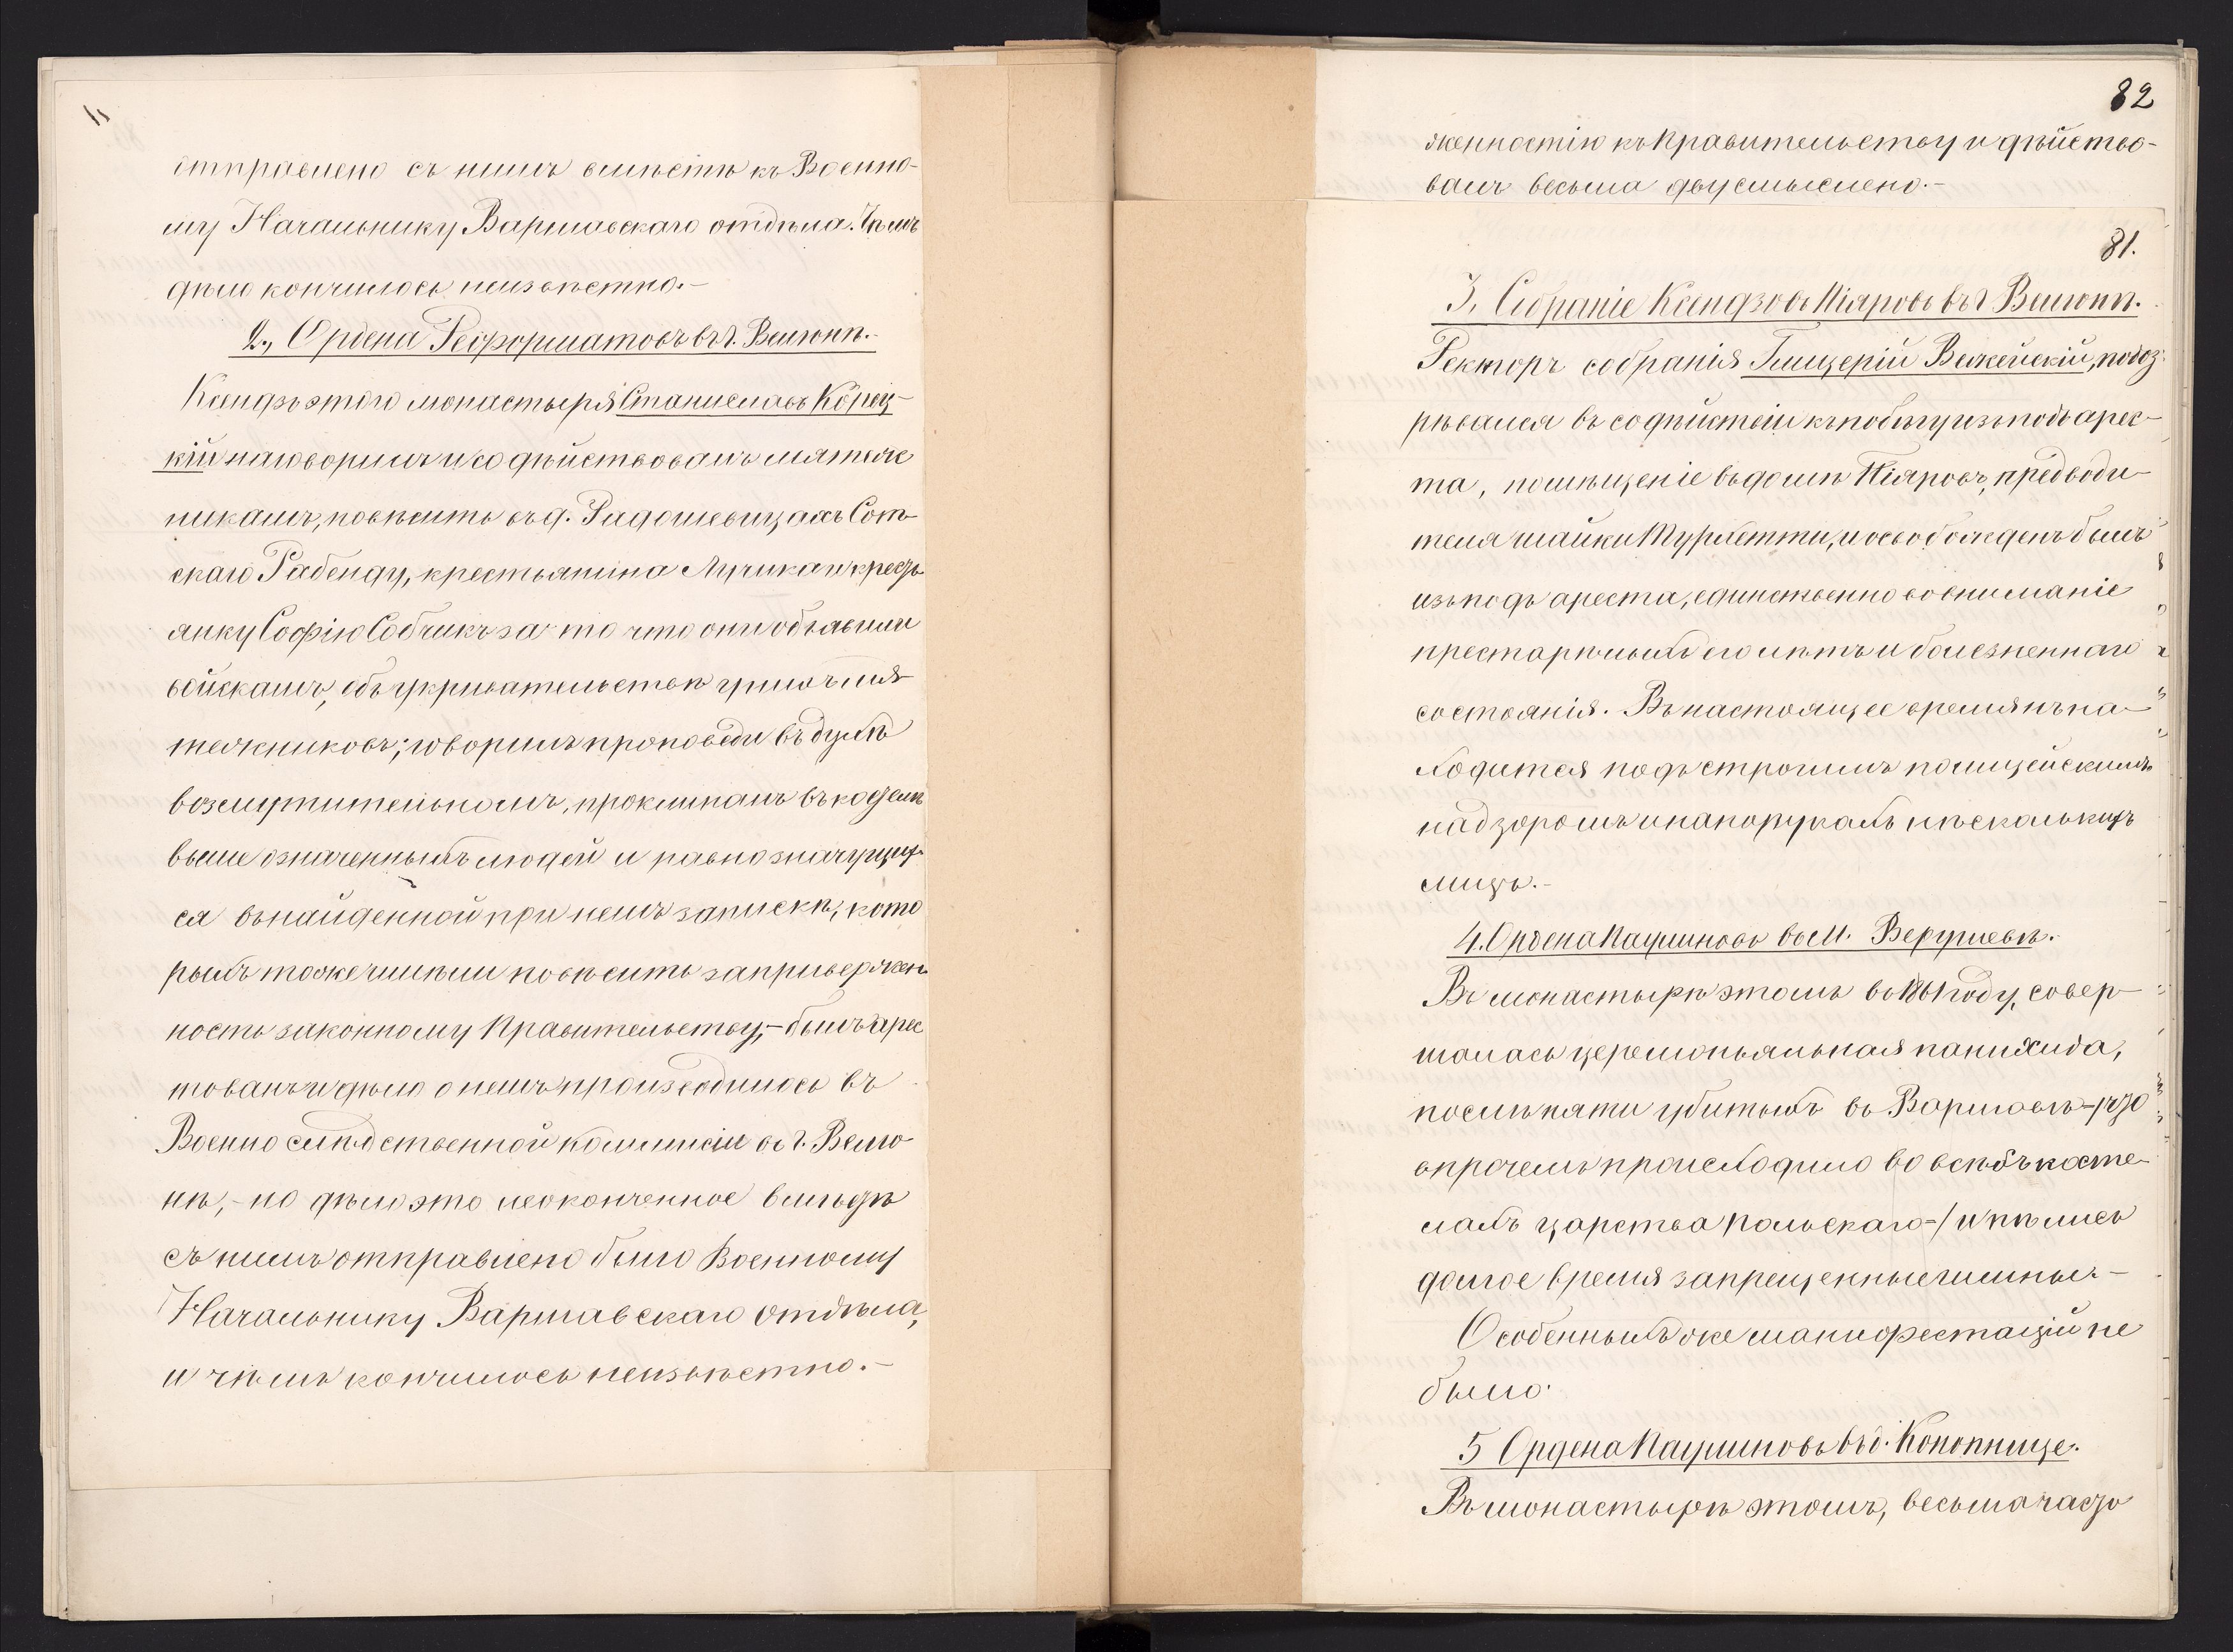 отправлено съ нимъ вмѣстѣ къ Военно-
му Начальнику Варшавскаго отдѣла. Чѣмъ
дѣло кончилось неизвѣстно.-
2., Ордена Реформатовъ въ г. Велюнѣ.-
Ксендзъ этого монастыря Станиславъ Корец-
кій наговорилъ и содѣйствовалъ мятеж
никамъ, повѣсить въ д. Радошевицахъ Сот-
скаго Рабенду, крестьянина Лучика и кресть
янку Софію Собчикъ за то что они объявили
войскамъ, объ укрывательствѣ у нихъ мя-
тежниковъ; говорилъ проповѣди въ духѣ
возмутительномъ, проклиналъ въ костелѣ
выше означенныхъ людей и равно значущих-
ся въ найденной при немъ запискѣ, кото
рыхъ тоже имѣли повѣсить за привержен-
ность законному Правительству,- былъ арес
тованъ и дѣло о немъ производилось въ
Военно слѣдственной коммисіи въ г. Велю-
нѣ,- но дѣло это неоконченное вмѣстѣ
съ нимъ отправлено было Военному
Начальнику Варшавскаго отдѣла,
и чѣмъ кончилось неизвѣстно.-
82
женностію къ Правительству и дѣйство-
валъ весьма двусмысленно.-
81.
3, Собраніе Ксендзовъ Піяровъ въ г. Велюнѣ.
Ректоръ собранія Глицерій Велжейскій, подоз-
рѣвался въ содѣйствіи къ побѣгу изъ подъ арес-
та, помѣщеніе въ домѣ Піяровъ, предводи-
теля шайки Турлетти, и освобожденъ былъ
изъ подъ ареста, единственно во вниманіе
престарѣлыхъ его лѣтъ и болезненнаго
состоянія. Въ настоящее время нъ на-
ходится подъ строгимъ полицейскимъ
надзоромъ и на порукахъ нѣсколькихъ
лицъ.-
4. Ордена Паулиновъ въ м. Верушевѣ.
Въ монастырѣ этомъ въ 1861 году, совер-
шалась церемоньяльная панихида,
послѣ пяти убитыхъ въ Варшавѣ-/что
впрочемъ происходило во всѣхъ косте-
лахъ царства Польскаго-/ и пѣлись
долгое время запрещенные гимны.-
Особенныхъ же манифестацій не
было.
5 Ордена Паулиновъ въ д. Конопнице.
Въ монастырѣ этомъ, весьма часто